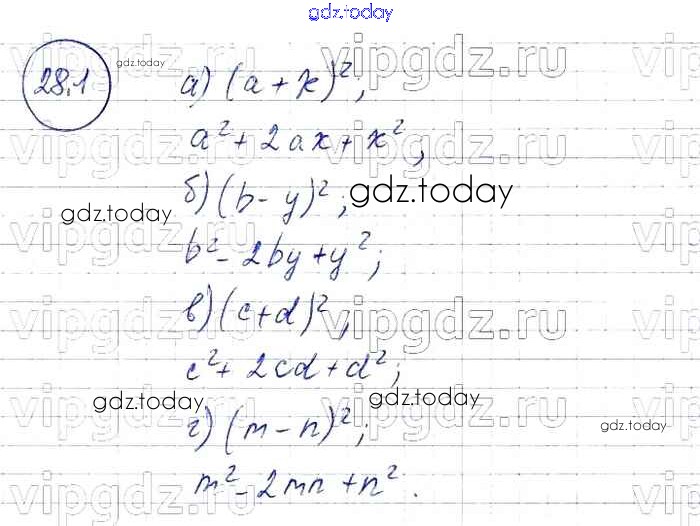 gdz.today
28.1
gdz.today
а) (a + x)²;
a² + 2ax + x²;
vipgdz.ru
б) (b - y)²;
gdz.today
gdz.today
b² - 2by + y²;
в) (c + d)²;
vipgdz.ru
c² + 2cd + d²;
gdz.today
gdz.today
г) (m - n)²;
gdz.today
m² - 2mn + n².
vipgdz.ru